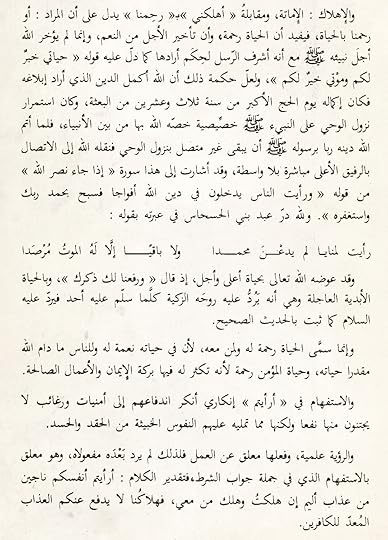 والإهلاك : الإماتة، ومقابلةُ « أهلكني » بـ« رحمنا » يدل على أن المراد : أو
رحمنا بالحياة، فيفيد أن الحياة رحمة، وأن تأخير الأجل من النعم، وإنما لم يؤخر الله
أجل نبيئه ﷺ مع أنه أشرف الرّسل لحِكَم أرادها كما دلّ عليه قوله « حياتي خيرٌ
لكم وموْتي خيرٌ لكم »، ولعلّ حكمة ذلك أن الله أكمل الدين الذي أراد إبلاغه
فكان إكماله يوم الحج الأكبر من سنة ثلاث وعشرين من البعثة، وكان استمرار
نزول الوحي على النبيء ﷺ خصِّيصية خصّه الله بها من بين الأنبياء، فلما أتم
الله دينه ربا برسوله ﷺ أن يبقى غير متصل بنزول الوحي فنقله الله إلى الاتصال
بالرفيق الأعلى مباشرة بلا واسطة، وقد أشارت إلى هذا سورة « إذا جاء نصر الله »
من قوله « ورأيت الناس يدخلون في دين الله أفواجا فسبح بحمد ربك
واستغفره ». ولله درّ عبد بني الحسحاس في عبرته بقوله :
رأيت لمنايـا لم يدعْـنَ محمـدا ولا باقيًـا إلَّا لَهُ الموتُ مُرْصَدا
وقد عوضه الله تعالى بحياة أعلى وأجل، إذ قال « ورفعنا لك ذكرك »، وبالحياة
الأبدية العاجلة وهي أنه يَرُدُّ عليه روحَه الزكية كلَّما سلّم عليه أحد فيردّ عليه
السلام كما ثبت بالحديث الصحيح.
وإنما سمَّى الحياة رحمة له ولمن معه، لأن في حياته نعمة له وللناس ما دام الله
مقدرا حياته، وحياة المؤمن رحمة لأنه تكثر له فيها بركة الإيمان والأعمال الصالحة.
والاستفهام في « أرأيتم » إنكاري أنكر اندفاعهم إلى أمنيات ورغائب لا
يجتنون منها نفعا ولكنها مما تمليه عليهم النفوس الخبيثة من الحقد والحسد.
والرؤية علمية، وفعلها معلق عن العمل فلذلك لم يرد بَعْدَه مفعولاه، وهو معلق
بالاستفهام الذي في جملة جواب الشرط، فتقدير الكلام : أرأيتم أنفسكم ناجين
من عذاب أليم إن هلكتُ وهلك من معي، فهلاكُنا لا يدفع عنكم العذاب
المُعدّ للكافرين.